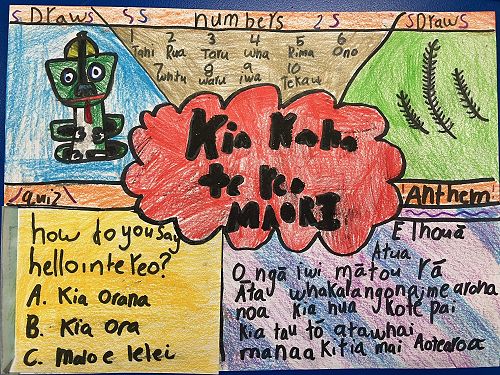 Draws
numbers
Draws
1 2 3 4 5 6
Tahi Rua Toru wha Rima Ono
7 8 9 10
whitu waru iwa Tekau
Kia Kaha
te reo
MAORI
quiz
how do you say
hello in te reo?
A. Kia Orana
B. Kia Ora
C. Malo e lelei
Anthem
E Ihoua
Atua
O ngā iwi mātou rā
Āta whakalangona; me aroha
noa kia hua ko te pai
Kia tau tō atawhai
manaakitia mai Aotearoa